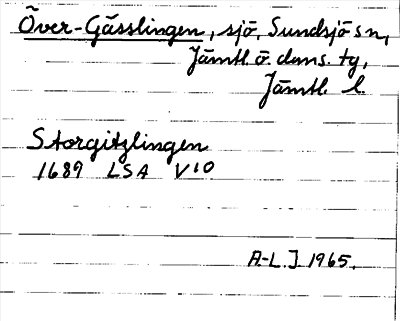 Över-Gässlingen, sjö, Sundsjö sn,
Jämtl. ö. doms. tg,
Jämtl. l.
Storgitzlingen
1689 LSA V10
A-L.J 1965.